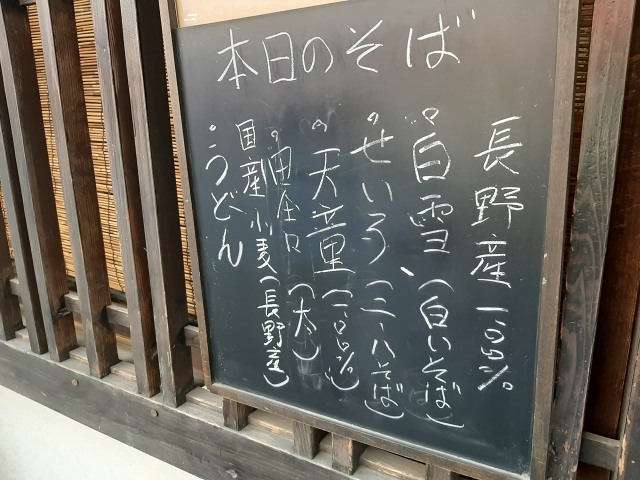 本日のそば
長野産 一〇〇%
。白雪(白いそば)
。せいろ、(二・八そば)
。天童(一〇〇%)
。田舎(太)
国産小麦(長野産)
。うどん